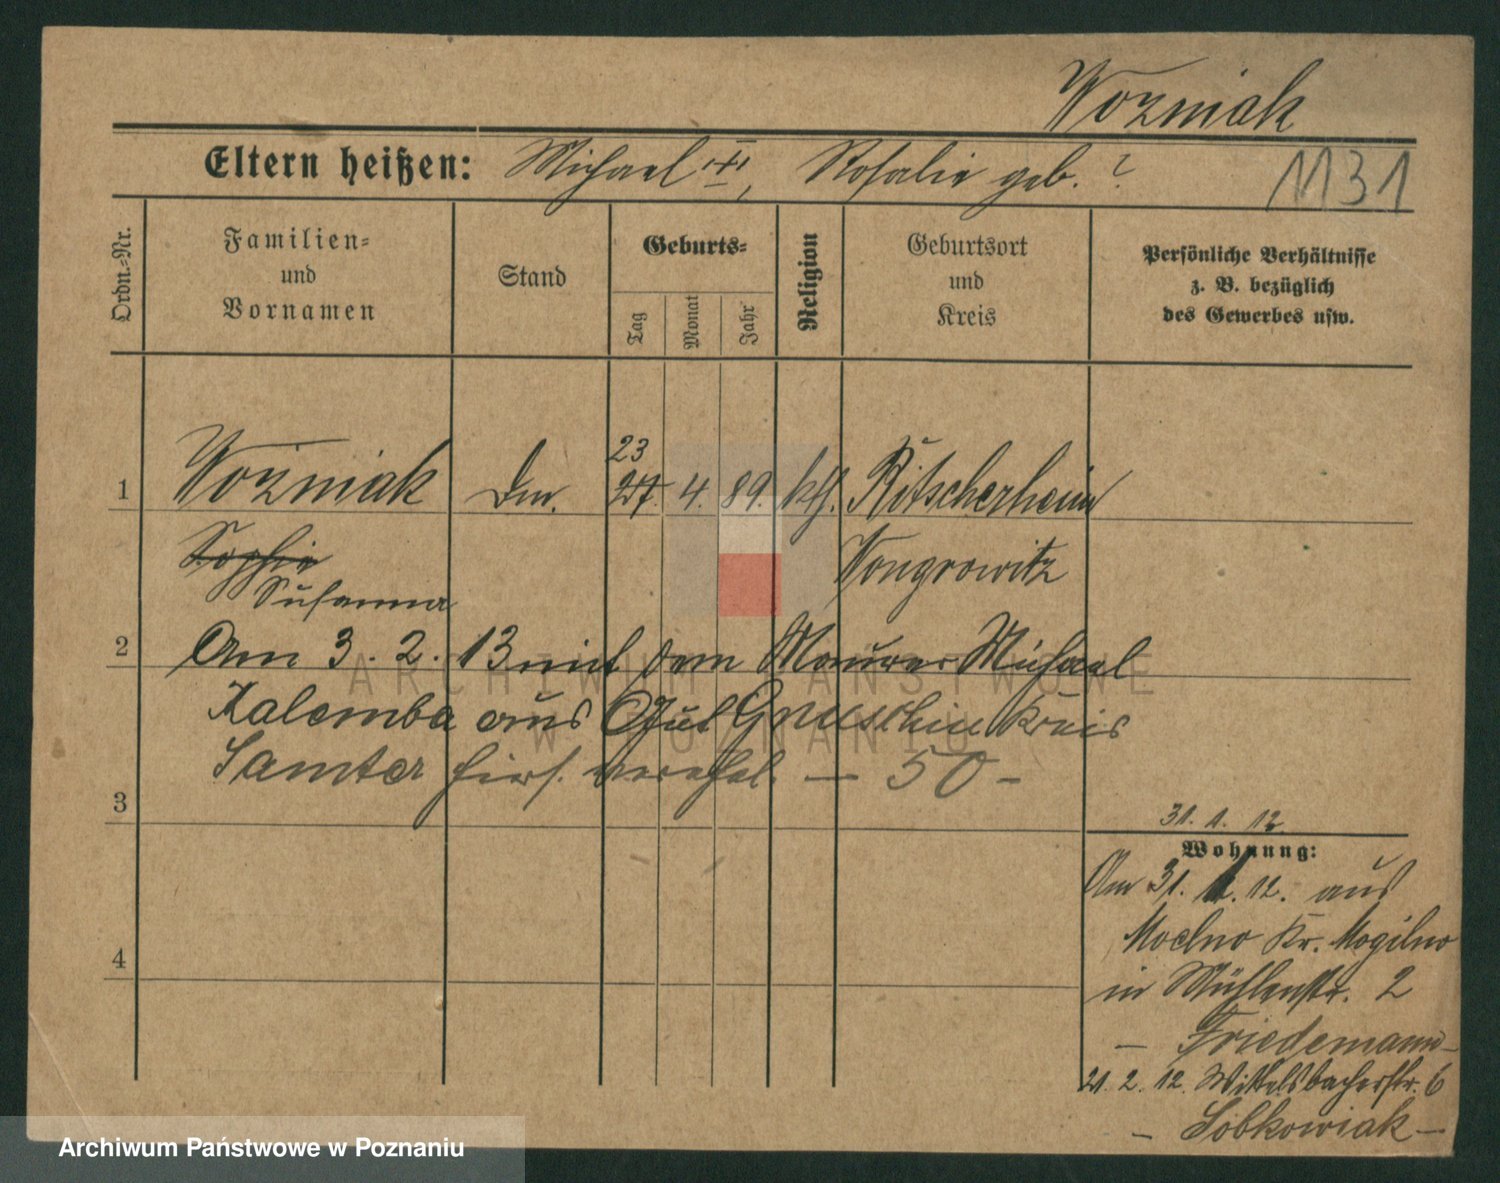 Wozniak
Eltern heißen: Michael III, Rosalie geb. ?
1131
Ordn.-Nr.
Familien-
und
Vornamen
Stand
Geburts-
Tag
Monat
Jahr
Religion
Geburtsort
und
Kreis
Persönliche Verhältnisse
z. B. bezüglich
des Gewerbes usw.
23
1 Wozniak Dm. 27. 4. 89. kth. Ritscherheim
Sophie
Wongrowitz
Susanna
2 Am 3. 2. 13 mit dem Maurer Michael
Kalemba aus Gut Gnuschin Kreis
Samter hier verehel. — 50 —
3
31. 1. 12
Wohnung:
Am 31. 1. 12. aus
Moelno Kr. Mogilno
4
in Mühlenstr. 2
— Friedemann —
21. 2. 12. Wittelsbacherstr. 6
— Sobkowiak —
ARCHIWUM PAŃSTWOWE
W POZNANIU
Archiwum Państwowe w Poznaniu